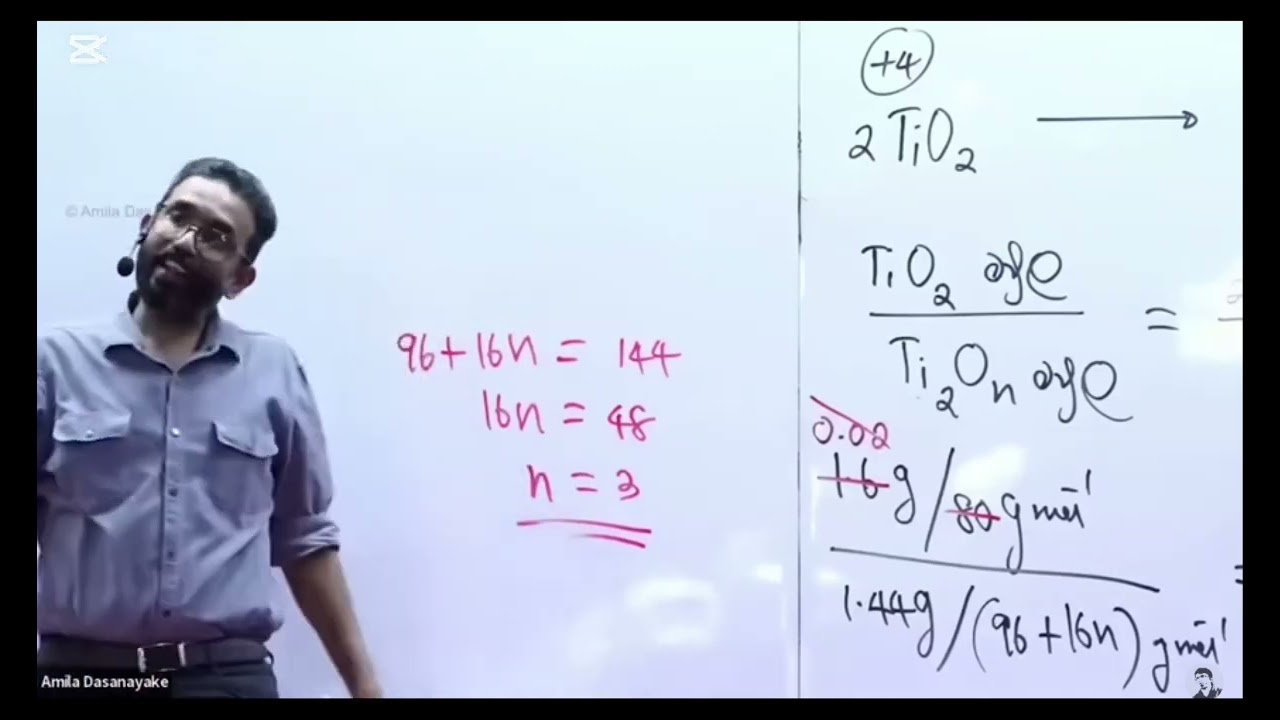 © Amila Das
96+16n = 144
16n = 48
n = 3
+4
2 TiO₂ ⟶
TiO₂
=
Ti₂Oₙ
0.02
1.6 g / 80 g mol⁻¹
1.44g / (96 + 16n) g mol⁻¹
Amila Dasanayake